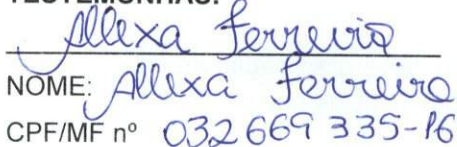 TESTEMUNHAS:
Allexa Ferreira
NOME: Allexa Ferreira
CPF/MF nº 032669335-16